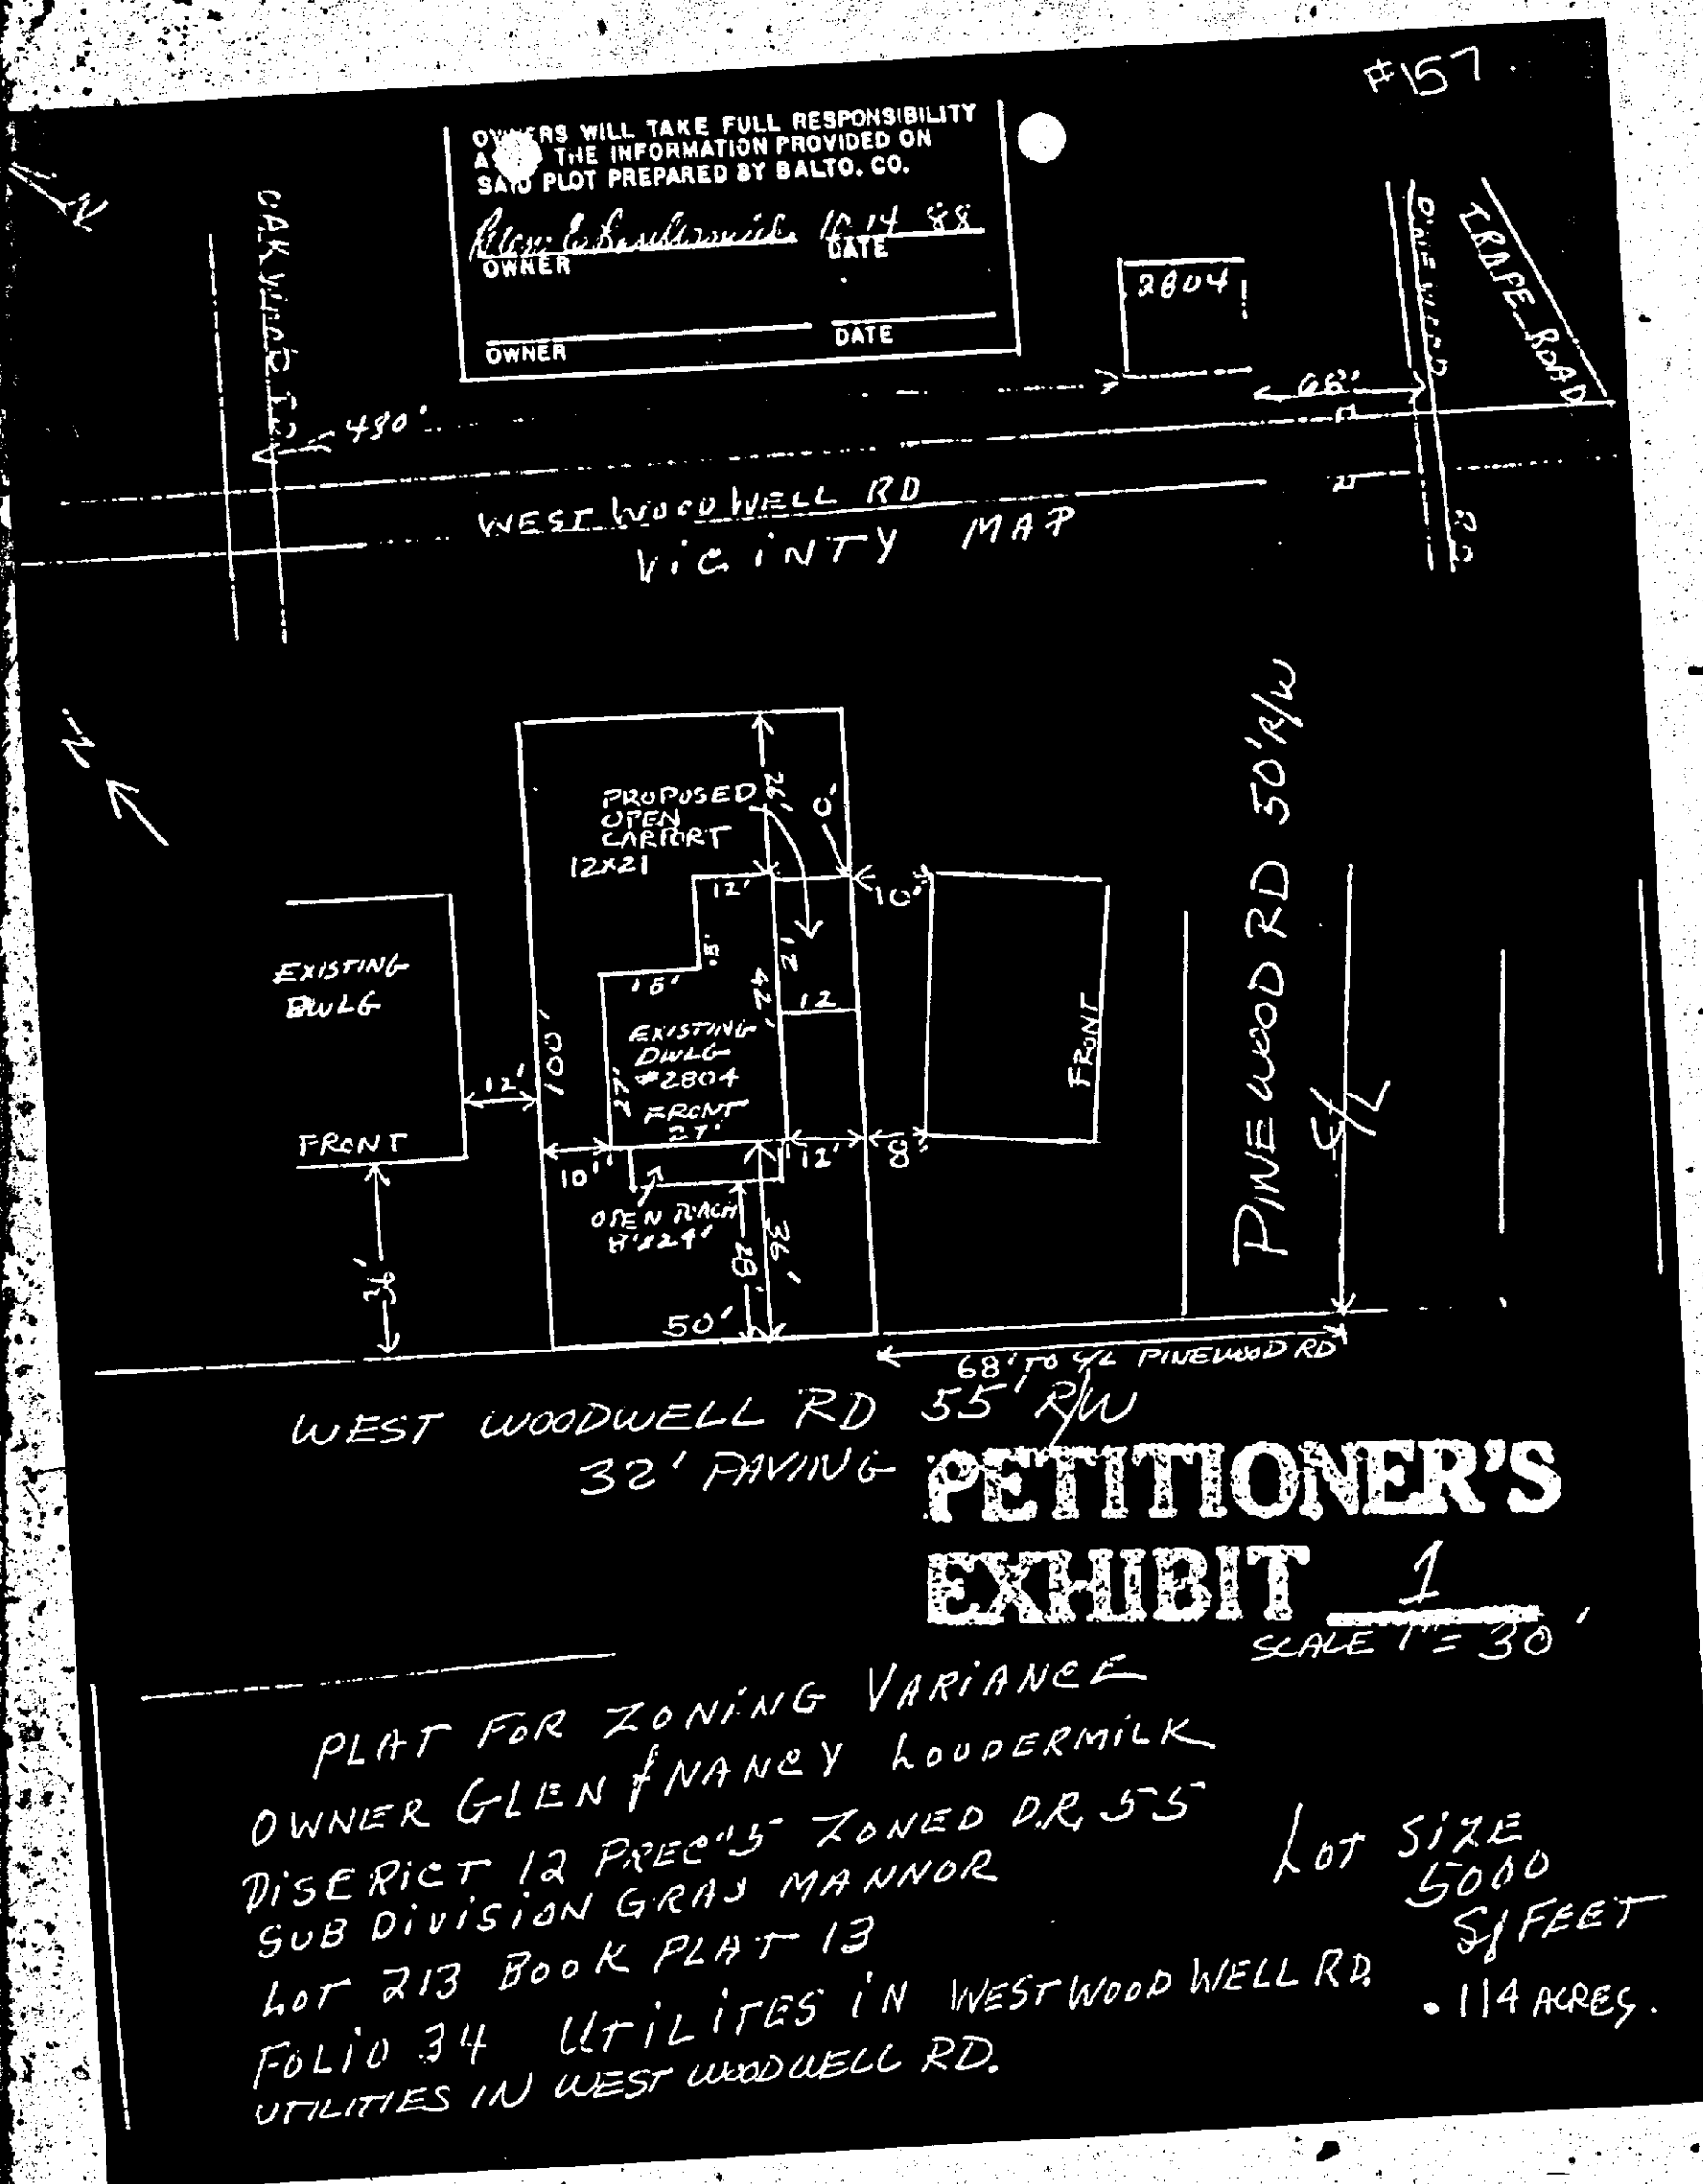 #157
OWNERS WILL TAKE FULL RESPONSIBILITY
THE INFORMATION PROVIDED ON
SAID PLOT PREPARED BY BALTO. CO.
10 14 88
OWNER DATE
OWNER DATE
N
2804
PINEWOOD RD
TRAPE ROAD
68'
WEST WOODWELL RD
VICINTY MAP
N
PROPOSED
OPEN
CARPORT
12X21
26'
0'
12'
10'
15'
42'
12
EXISTING
DWLG
EXISTING
DWLG
#2804
FRONT
27'
27'
100'
12'
FRONT
10'
12'
8'
FRONT
OPEN
8'X24'
28'
36'
36'
50'
PINEWOOD RD 50' R/W
C/L
68' TO C/L PINEWOOD RD
WEST WOODWELL RD 55' R/W
32' PAVING
PETITIONER'S
EXHIBIT 1
SCALE 1" = 30'
PLAT FOR ZONING VARIANCE
OWNER GLEN & NANCY LOUDERMILK
DISERICT 12 PREC"5 ZONED D.R. 55
SUB DIVISION GRAY MANNOR
LOT 213 BOOK PLAT 13
FOLIO 34 UTILITES IN WESTWOOD WELL RD.
UTILITIES IN WEST WOODWELL RD.
LOT SIZE
5000
S/FEET
.114 ACRES.